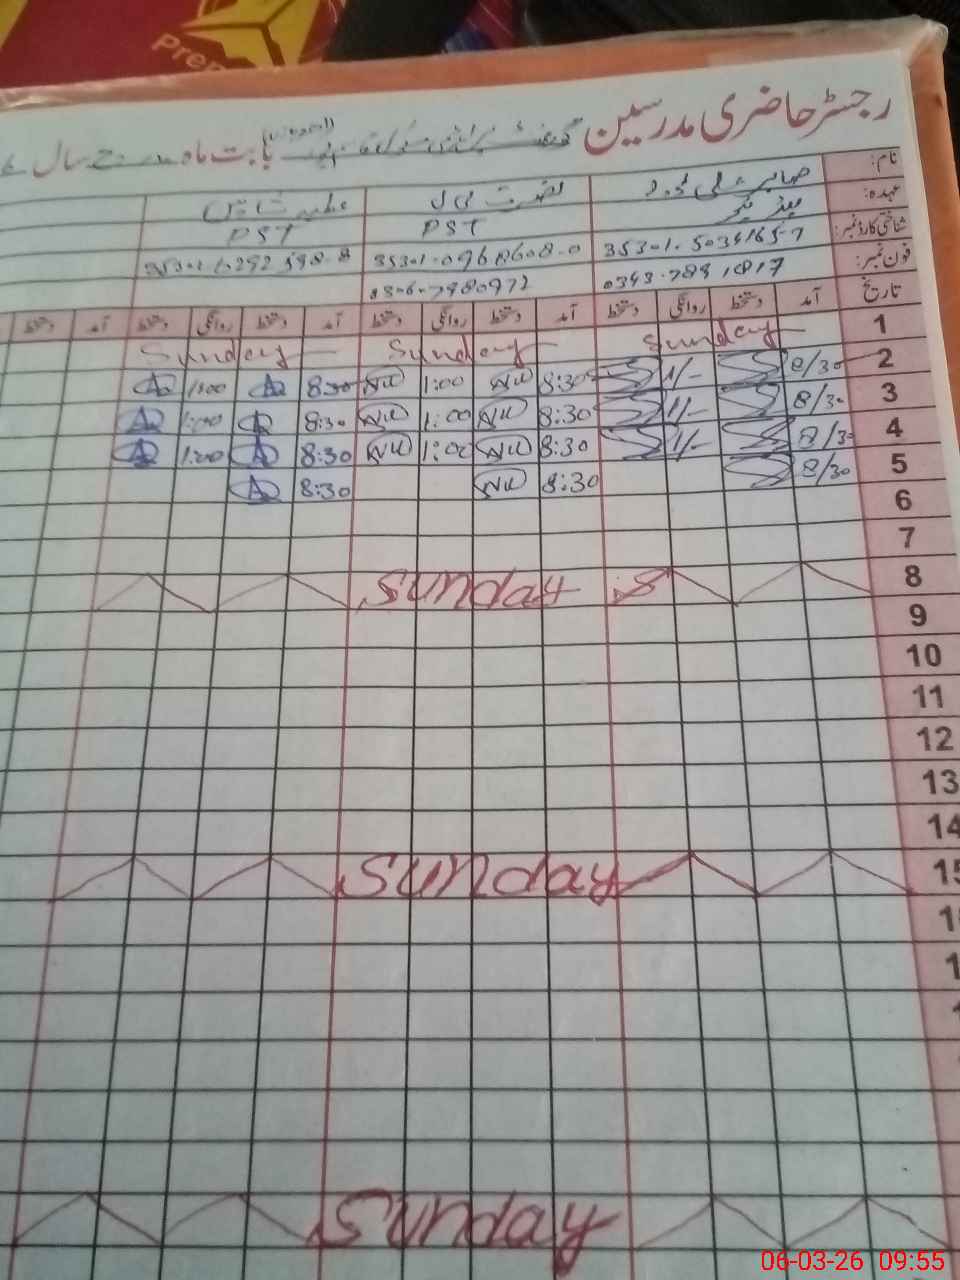 Pren
رجسٹر حاضری مدرسین گورنمنٹ پرائمری سکول بابت ماہ مارچ سال
نام: صابر علی نصرت بی بی عطیہ شاہین
عہدہ: ہیڈ ٹیچر PST PST
شناختی کارڈ نمبر: 35301-5034165-7 35301-0968608-0
فون نمبر: 0343-7891817 0306-7980972
تاریخ آمد دستخط روانگی دستخط آمد دستخط روانگی دستخط آمد دستخط روانگی دستخط آمد
1 Sunday Sunday Sunday
2 8/30 1/- 8:30 1:00 8:30 1:00
3 8/30 1/- 8:30 1:00 8:30 1:00
4 8/30 1/- 8:30 1:00 8:30 1:00
5 8/30 8:30 8:30
6
7
8 Sunday
9
10
11
12
13
14
15 Sunday
Sunday
06-03-26 09:55